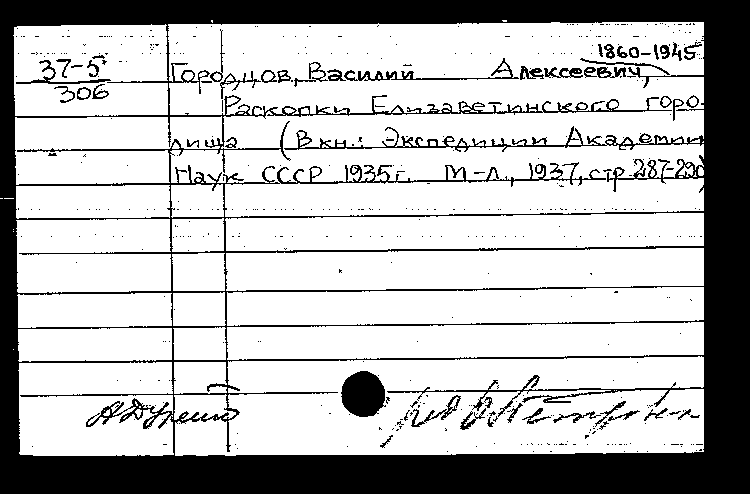 1860-1945
37-5 Городцов, Василий Алексеевич,
306
Раскопки Елизаветинского горо-
дища (В кн.: Экспедиции Академии
Наук СССР 1935г. М-Л., 1937, стр 287-290)